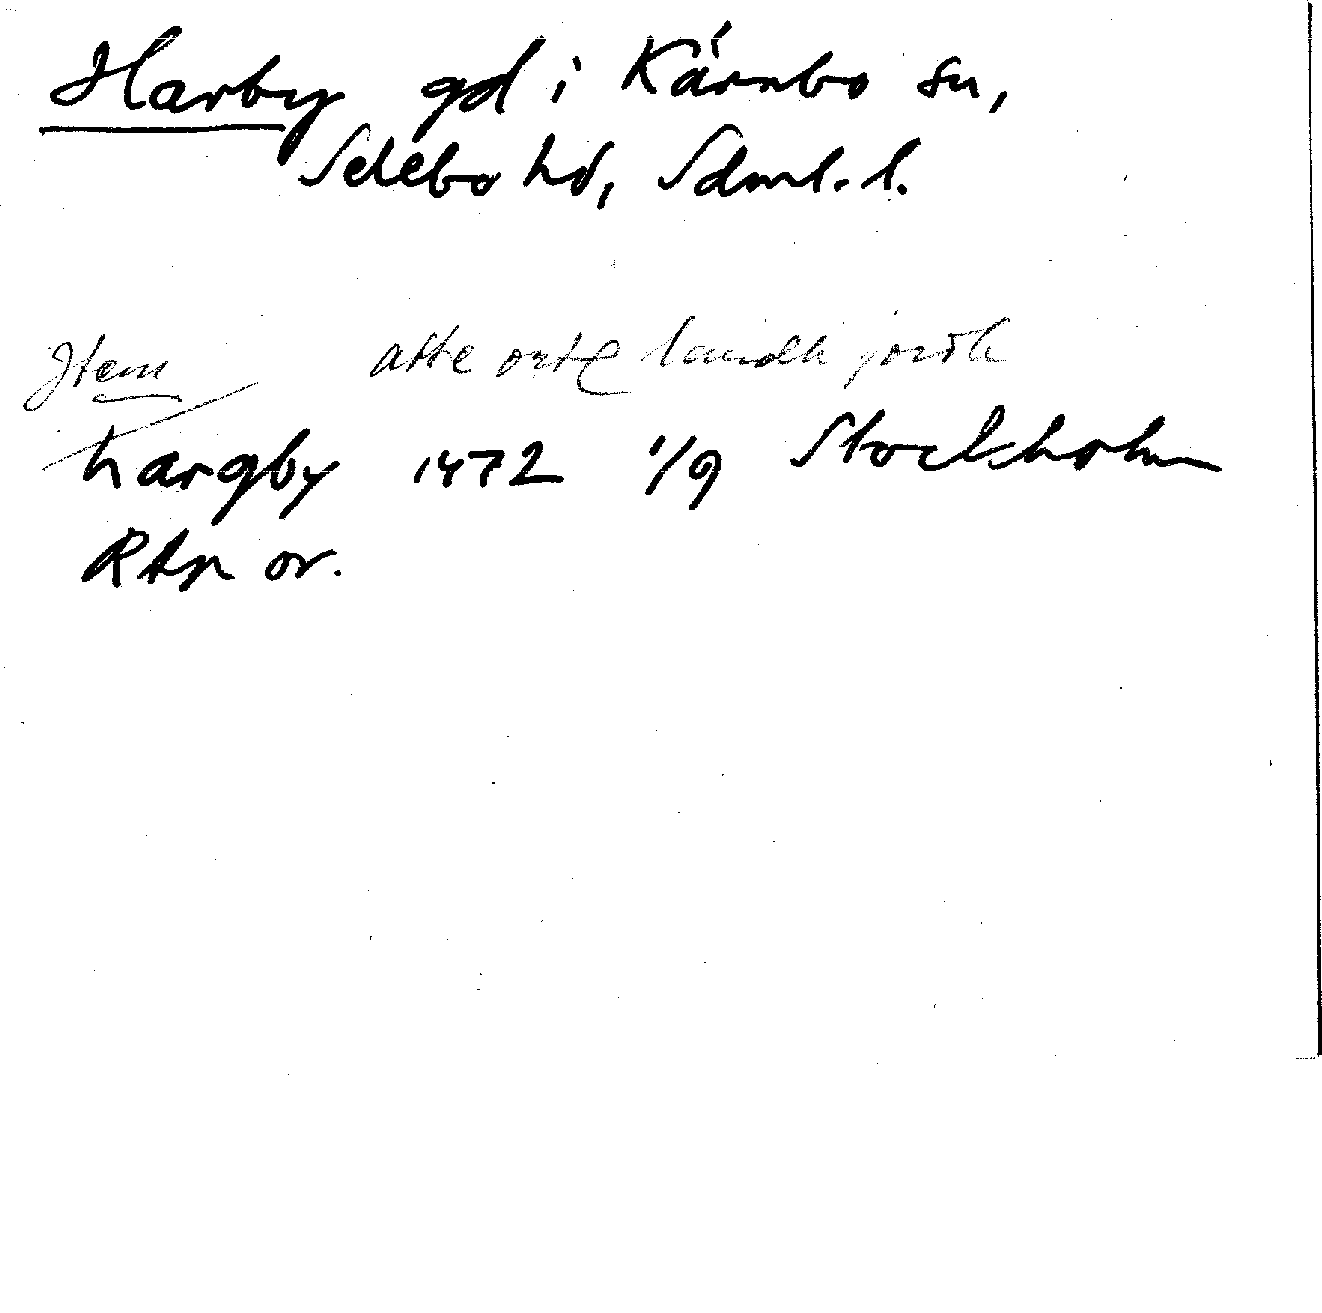 Harby gd i Kärnbo sn,
Selebo hd, Sdml. l.
Item atte ortg landh jordh
hargby 1472 1/9 Stockholm
RAp or.